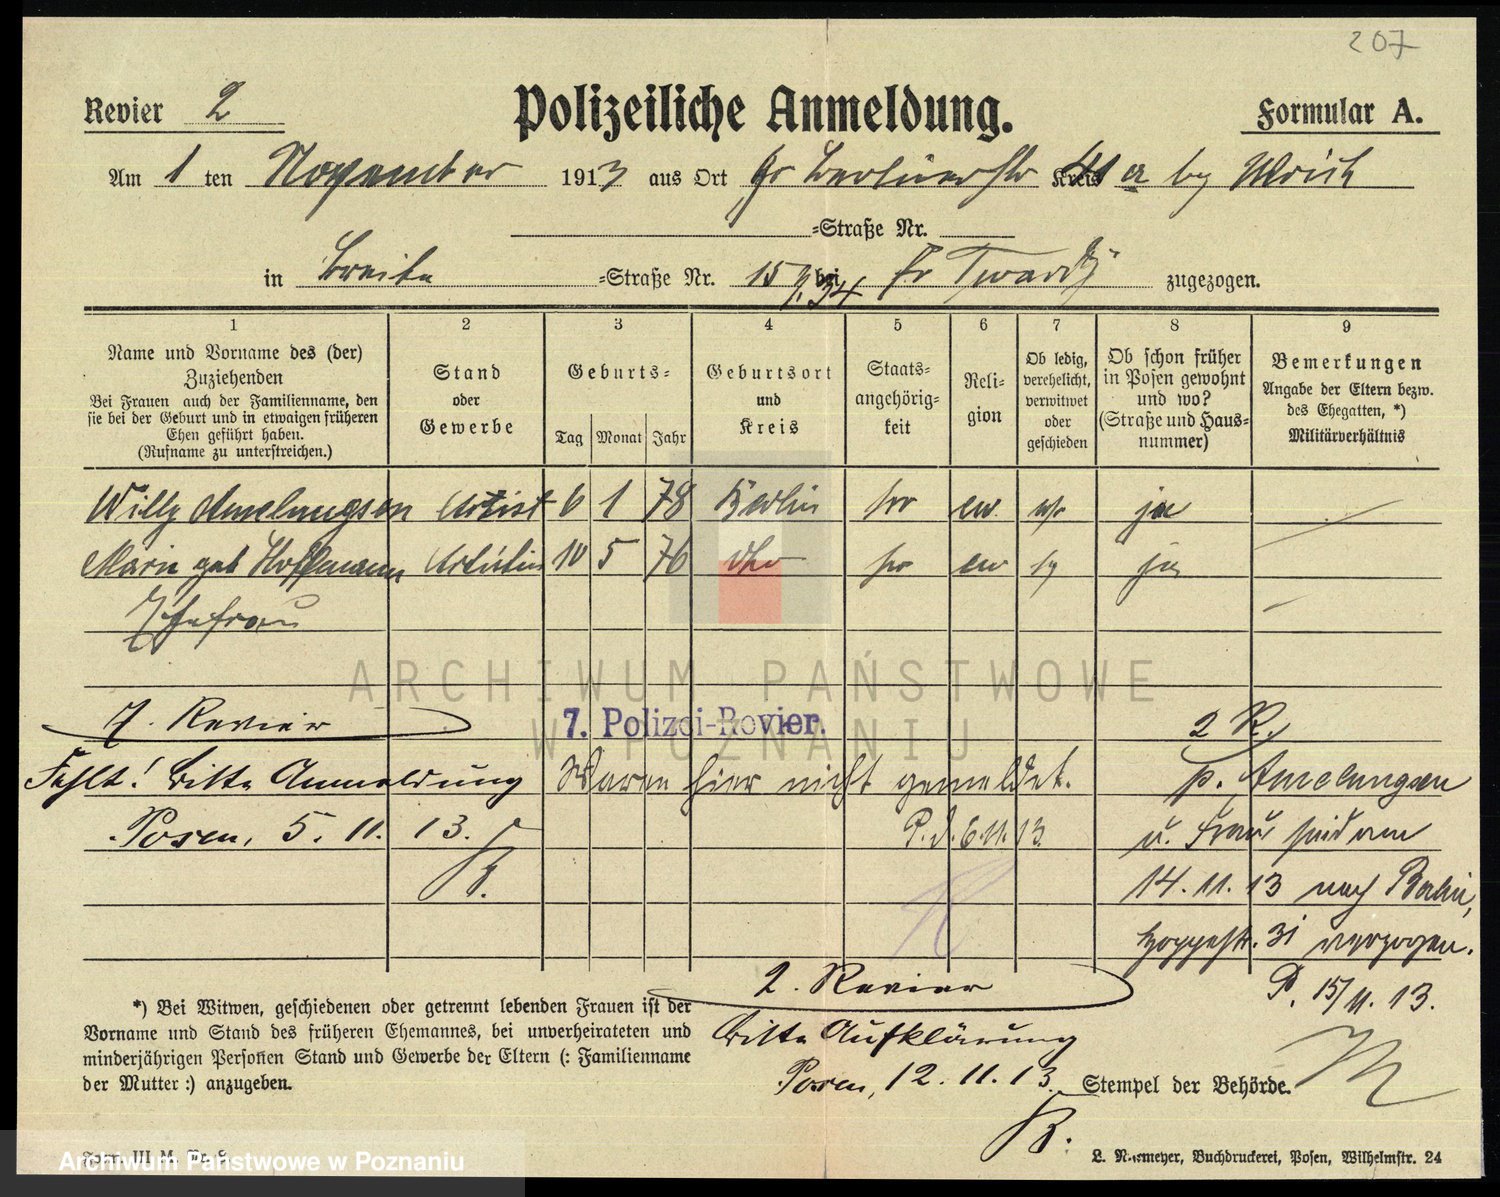 207
Revier 2
Polizeiliche Anmeldung.
Formular A.
Am 1 ten November 1913 aus Ort Gr Berlinerstr Kreis 41 a by Ulrich
=Straße Nr.
in Breite =Straße Nr. 15 bei Fr Twardy zugezogen.
1 2 3 4 5 6 7 8 9
Name und Vorname des (der)
Zuziehenden
Bei Frauen auch der Familienname, den
sie bei der Geburt und in etwaigen früheren
Ehen geführt haben.
(Rufname zu unterstreichen.)
Stand
oder
Gewerbe
Geburts=
Tag Monat Jahr
Geburtsort
und
Kreis
Staats=
angehörig=
keit
Reli=
gion
Ob ledig,
verehelicht,
verwitwet
oder
geschieden
Ob schon früher
in Posen gewohnt
und wo?
(Straße und Haus=
nummer)
Bemerkungen
Angabe der Eltern bezw.
des Ehegatten, *)
Militärverhältnis
Willy Amelungsen Artist 6 1 78 Berlin pr ev ja
Marie geb Hoffmann Artistin 10 5 76 dto pr ev ja
Ehefrau
7. Revier
7. Polizei-Revier.
Fehlt! Bitte Anmeldung
Posen, 5. 11. 13.
Waren hier nicht gemeldet.
P. d. 6.11.13.
2 R.
p. Amelungsen
u. Frau sind am
14.11.13 nach Berlin,
31 verzogen.
P. 15/11.13.
2. Revier
Bitte Aufklärung
Posen, 12.11.13.
*) Bei Witwen, geschiedenen oder getrennt lebenden Frauen ist der
Vorname und Stand des früheren Ehemannes, bei unverheirateten und
minderjährigen Personen Stand und Gewerbe der Eltern (: Familienname
der Mutter :) anzugeben.
Stempel der Behörde.
Form. III M. Nr. 9.
L. Niemeyer, Buchdruckerei, Posen, Wilhelmstr. 24
ARCHIWUM PAŃSTWOWE
W POZNANIU
Archiwum Państwowe w Poznaniu